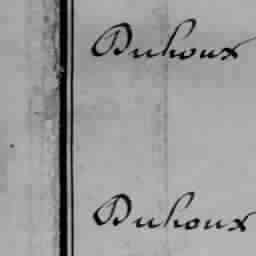 Duhoux
Duhoux